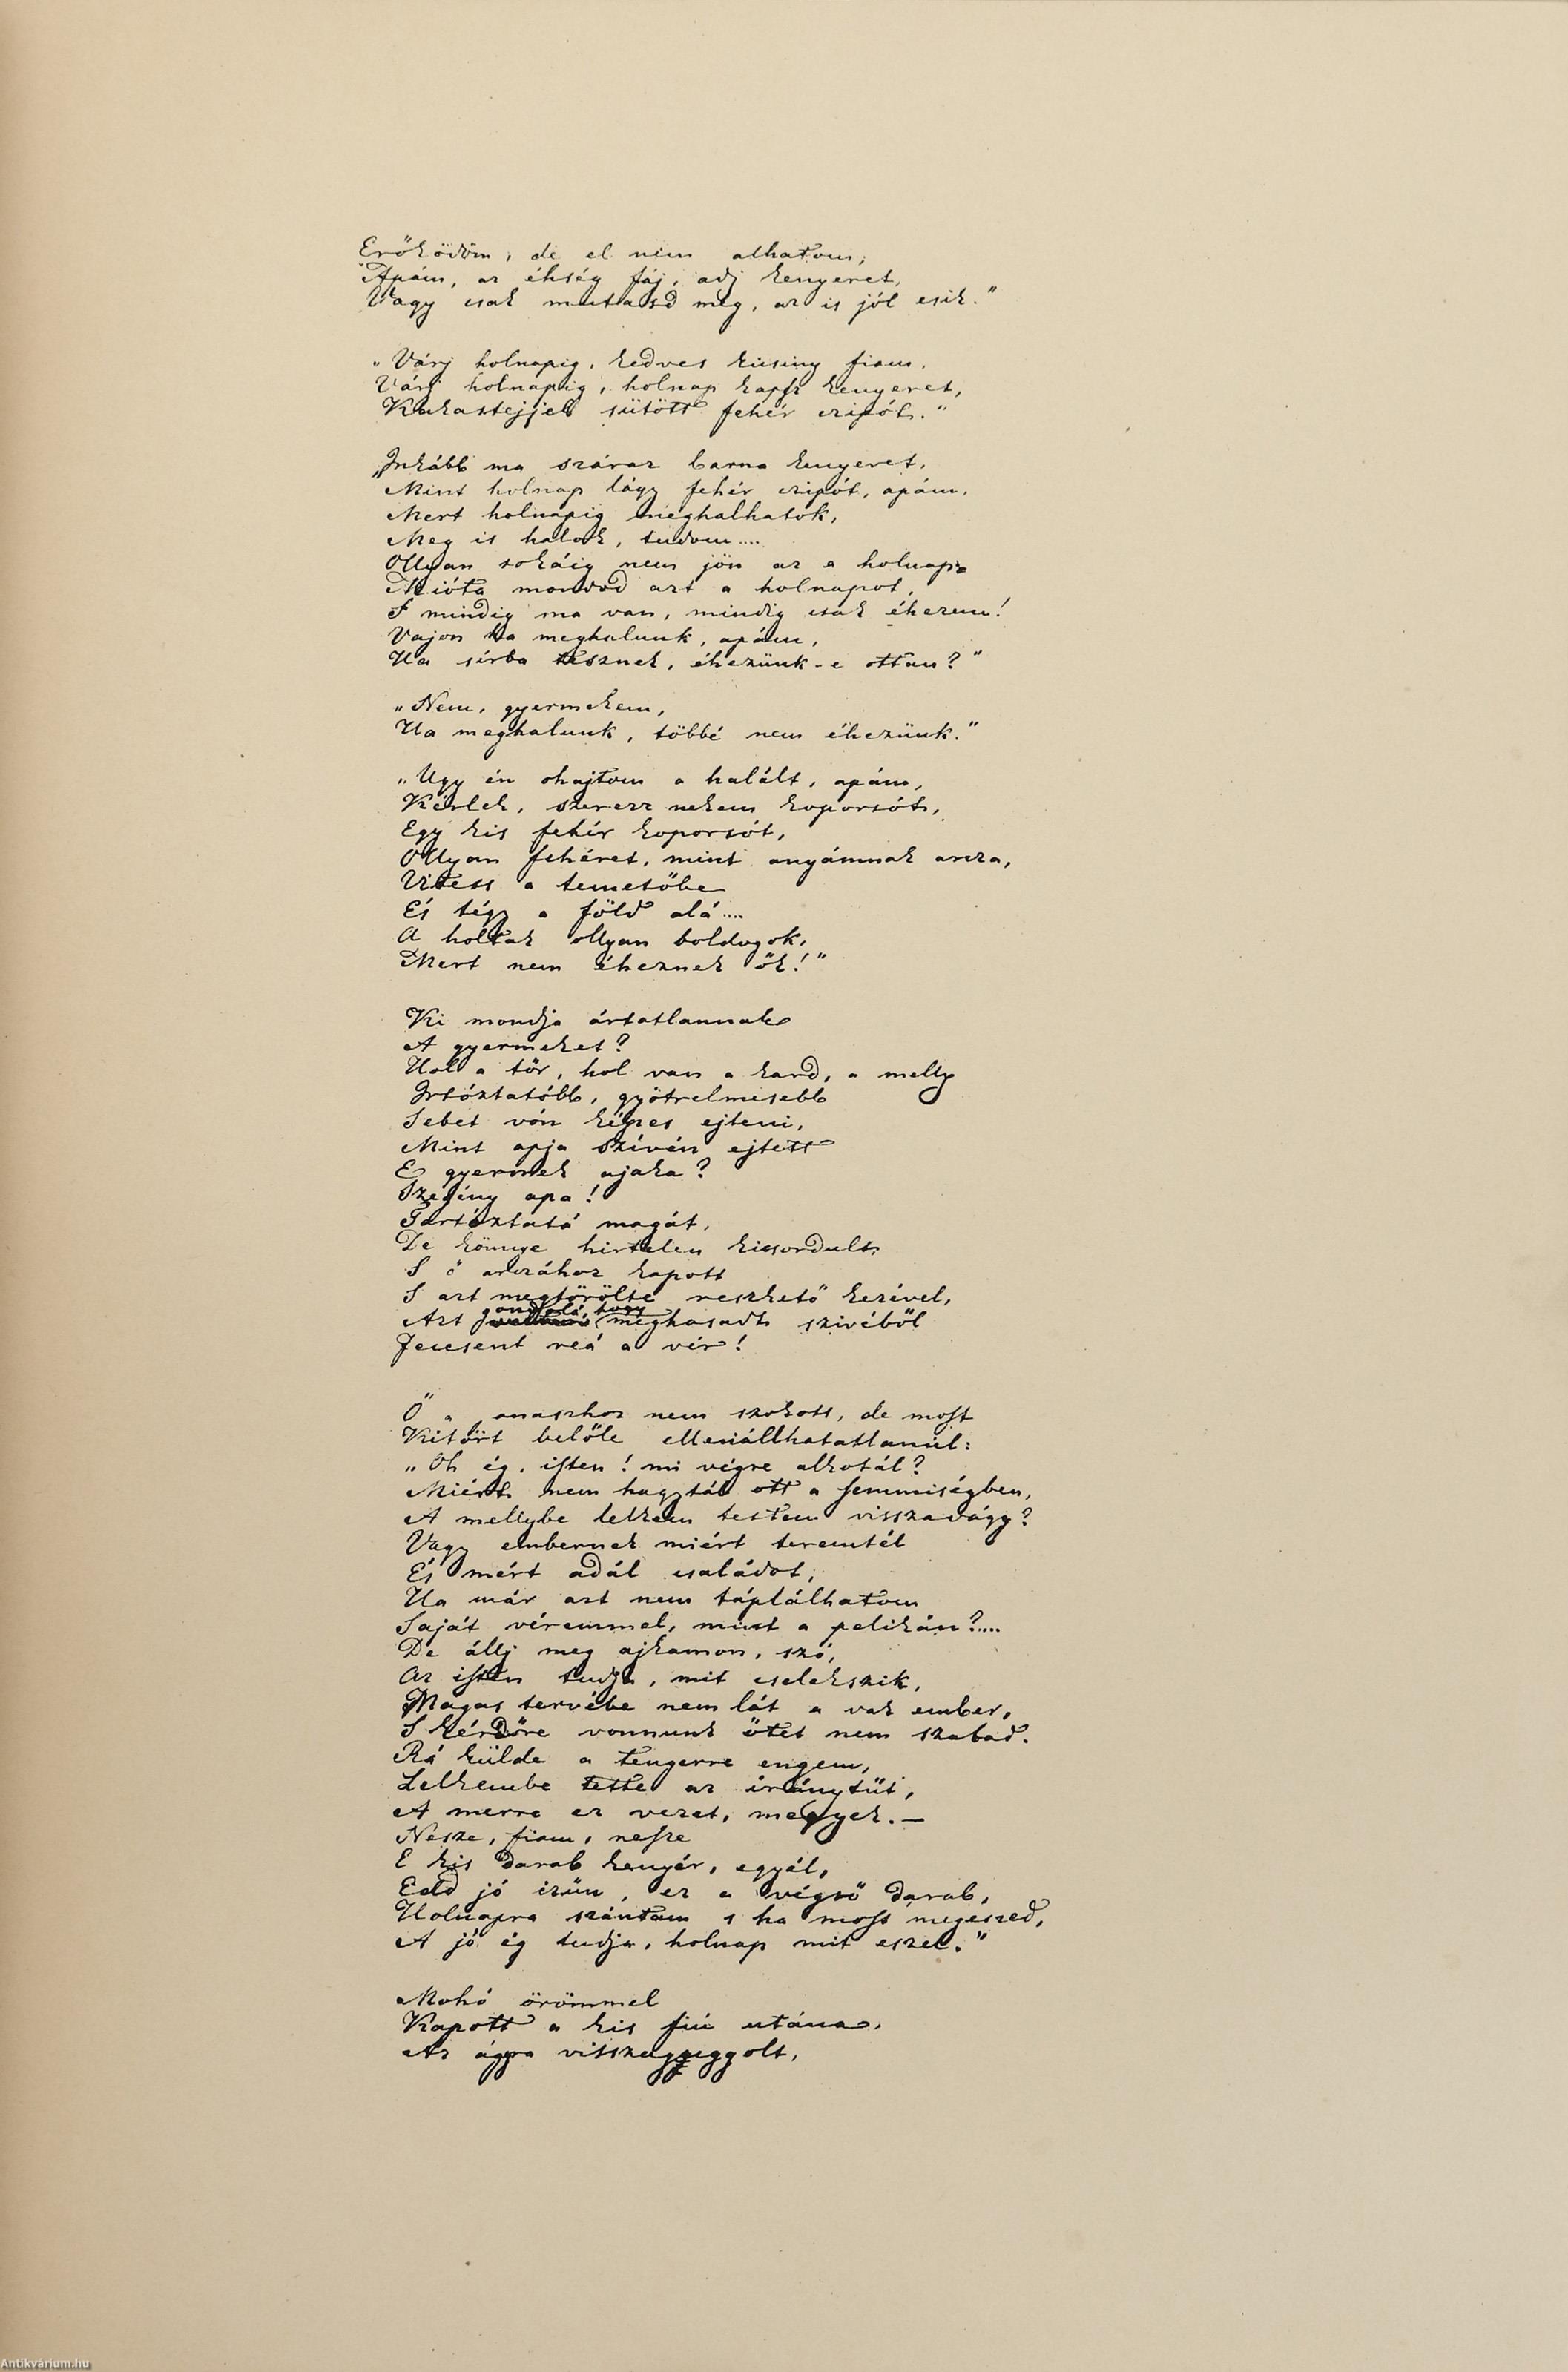 Erőködöm, de el nem alhatom,
Apám, az éhség fáj, adj kenyeret,
Vagy csak mutasd meg, az is jól esik."
„Várj holnapig, kedves kicsiny fiam,
Várj holnapig, holnap kapsz kenyeret,
Kakastejjel sütött fehér czipót."
„Inkább ma száraz barna kenyeret,
Mint holnap lágy fehér czipót, apám,
Mert holnapig meghalhatok,
Meg is halok, tudom....
Ollyan sokáig nem jön az a holnap.
Mióta mondod azt a holnapot,
S mindig ma van, mindig csak éhezem!
Vajon ha meghalunk, apám,
Ha sírba tesznek, éhezünk-e ottan?"
„Nem, gyermekem,
Ha meghalunk, többé nem éhezünk."
„Ugy én ohajtom a halált, apám,
Kérlek, szerezz nekem koporsót,
Egy kis fehér koporsót,
Ollyan fehéret, mint anyámnak arcza,
Vitess a temetőbe
És tégy a föld alá....
A holtak ollyan boldogok,
Mert nem éheznek ők!"
Ki mondja ártatlannak
A gyermeket?
Hol a tőr, hol van a kard, a melly
Irtóztatóbb, gyötrelmesebb
Sebet vón képes ejteni,
Mint apja szívén ejtett
E gyermek ajaka?
Szegény apa!
Tartóztatá magát,
De könnye hirtelen kicsordult,
S ő arczához kapott
S azt megtörölte reszkető kezével,
Azt gondolá, hogy meghasadt szivéből
Fecscsent reá a vér!
Ő a panaszhoz nem szokott, de most
Kitört belőle ellenállhatatlanúl:
„Oh ég, isten! mi végre alkotál?
Miért nem hagytál ott a semmiségben,
A mellybe lelkem testem visszavágy?
Vagy embernek miért teremtél
És mért adál családot,
Ha már azt nem táplálhatom
Saját véremmel, mint a pelikán?....
De állj meg ajkamon, szó,
Az isten tudja, mit cselekszik,
Magas tervébe nem lát a vak ember,
S kérdőre vonnunk őtet nem szabad.
Rá külde a tengerre engem,
Lelkembe tette az iránytűt,
A merre ez vezet, megyek. —
Nesze, fiam, nesze
E kis darab kenyér, egyél,
Edd jó izűn, ez a végső darab,
Holnapra szántam s ha most megeszed,
A jó ég tudja, holnap mit eszel."
Mohó örömmel
Kapott a kis fiú utána,
Az ágyra visszaguggolt,
Antikvárium.hu